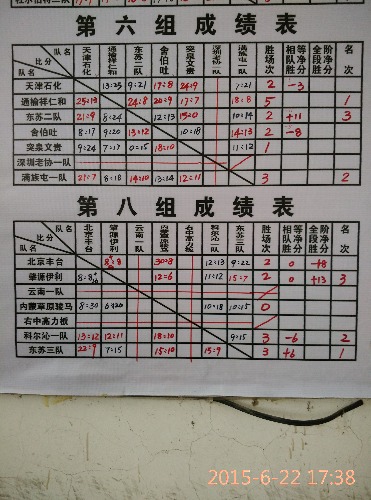 第六组成绩表
队名 比分 队名 天津石化 通榆祥仁和 东苏二队 舍伯吐 突泉文贵 深圳老协一队 满族屯一队 胜场次 相等队净胜 全阶段净胜 名次
天津石化 13:25 9:21 17:8 24:9 7:21 2 -3
通榆祥仁和 25:13 24:8 20:9 17:7 18:8 5 1
东苏二队 21:9 8:24 12:13 15:0 10:14 2 +11 3
舍伯吐 8:17 9:20 13:12 10:18 14:13 2 -8
突泉文贵 9:24 7:17 0:15 18:10 11:12 1
深圳老协一队
满族屯一队 21:7 8:18 14:10 13:14 12:11 3 2
第八组成绩表
队名 比分 队名 北京丰台 肇源伊利 云南一队 内蒙草原骏马 右中高力板 科尔沁一队 东苏三队 胜场次 相等队净胜 全阶段净胜 名次
北京丰台 8:8 30:8 12:13 9:22 2 0 +8
肇源伊利 8:8 12:6 11:12 15:7 2 0 +13 3
云南一队
内蒙草原骏马 8:30 6:12 10:18 10:15 0
右中高力板
科尔沁一队 13:12 12:11 18:10 9:15 3 -6 2
东苏三队 22:9 7:15 15:10 15:9 3 +6 1
2015-6-22 17:38